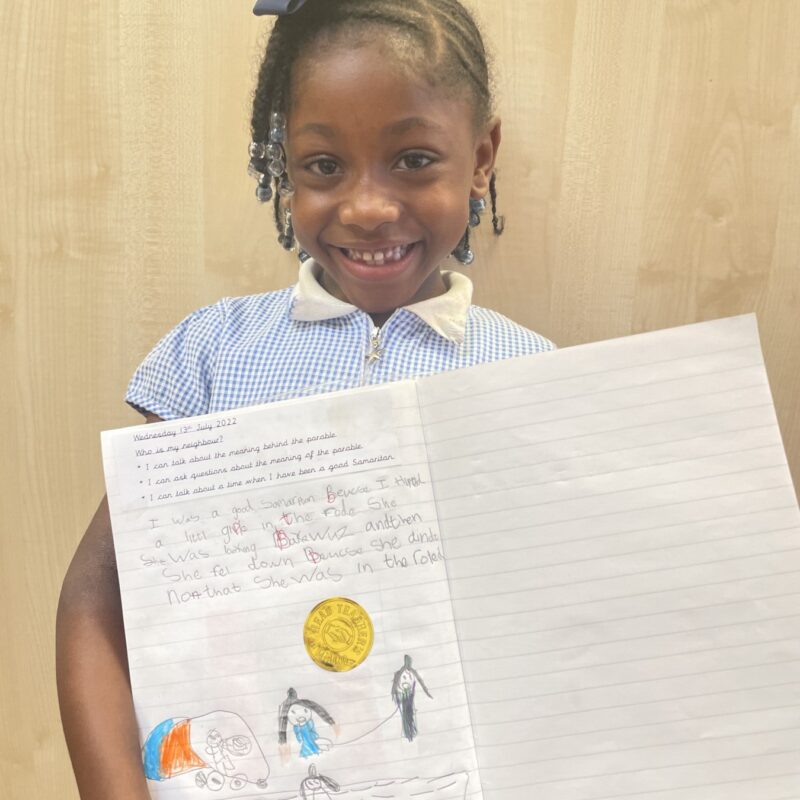 Wednesday 13th July 2022
Who is my neighbour?
• I can talk about the meaning behind the parable.
• I can ask questions about the meaning of the parable.
• I can talk about a time when I have been a good Samaritan.
I was a good Samaritan Because I
a littl in the rode She
She was
She fel down Because She
that She was in the
HEAD TEACHER'S